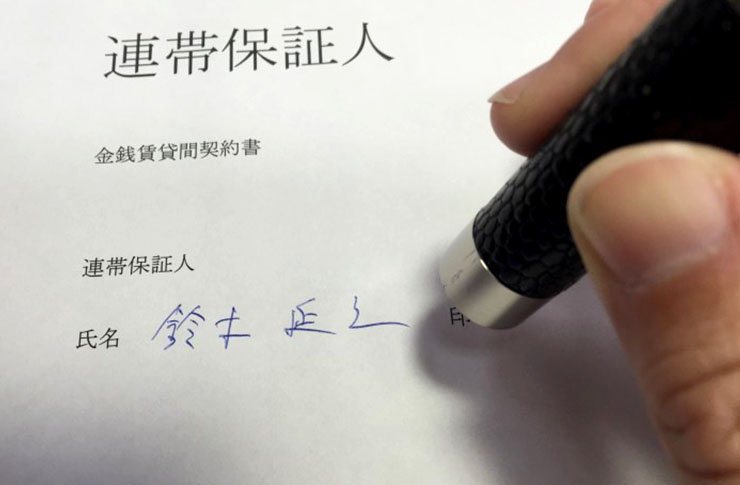 連帯保証人
金銭賃貸間契約書
連帯保証人
氏名 鈴木 延之 印